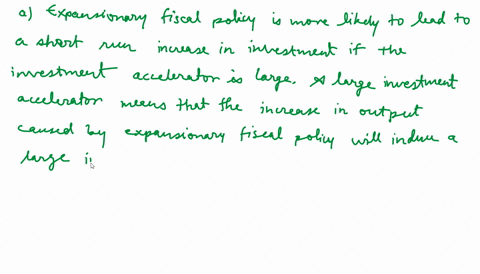 a) Expansionary fiscal policy is more likely to lead to
a short run increase in investment if the
investment accelerator is large. A large investment
accelerator means that the increase in output
caused by expansionary fiscal policy will induce a
large i